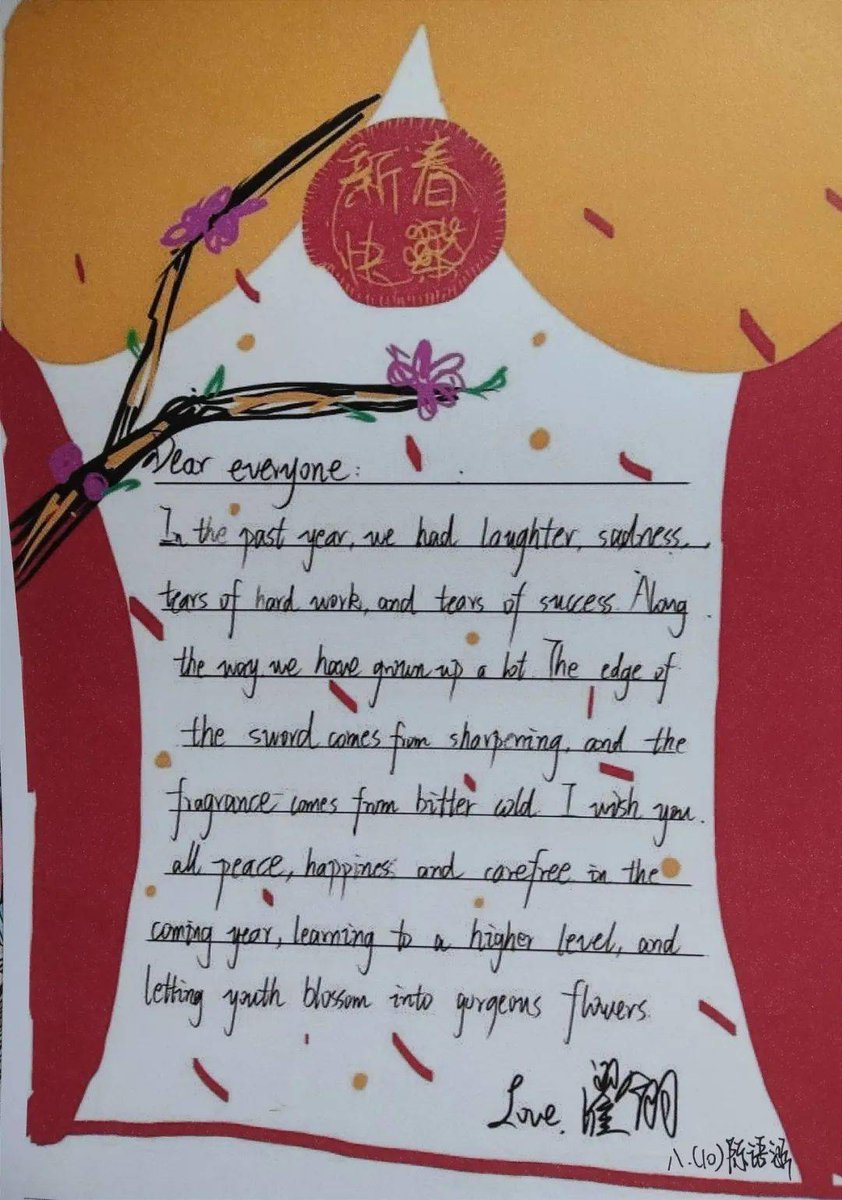 新春
快樂
Dear everyone:
In the past year, we had laughter, sadness,
tears of hard work, and tears of success. Along
the way, we have grown up a lot. The edge of
the sword comes from sharpening, and the
fragrance comes from bitter cold. I wish you
all peace, happiness and carefree in the
coming year, learning to a higher level, and
letting youth blossom into gorgeous flowers.
Love,
八.(10)陈语涵